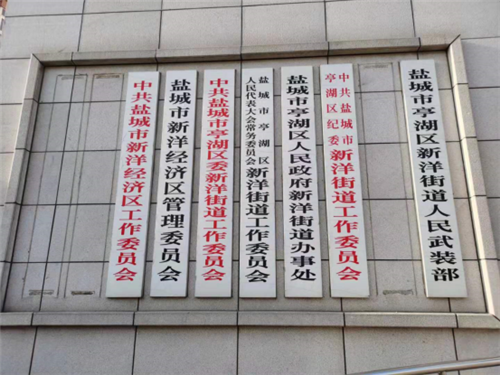 中共盐城市新洋经济区工作委员会
盐城市新洋经济区管理委员会
中共盐城市亭湖区委新洋街道工作委员会
盐城市亭湖区
人民代表大会常务委员会
新洋街道工作委员会
盐城市亭湖区人民政府新洋街道办事处
中共盐城市
亭湖区纪委
新洋街道工作委员会
盐城市亭湖区新洋街道人民武装部